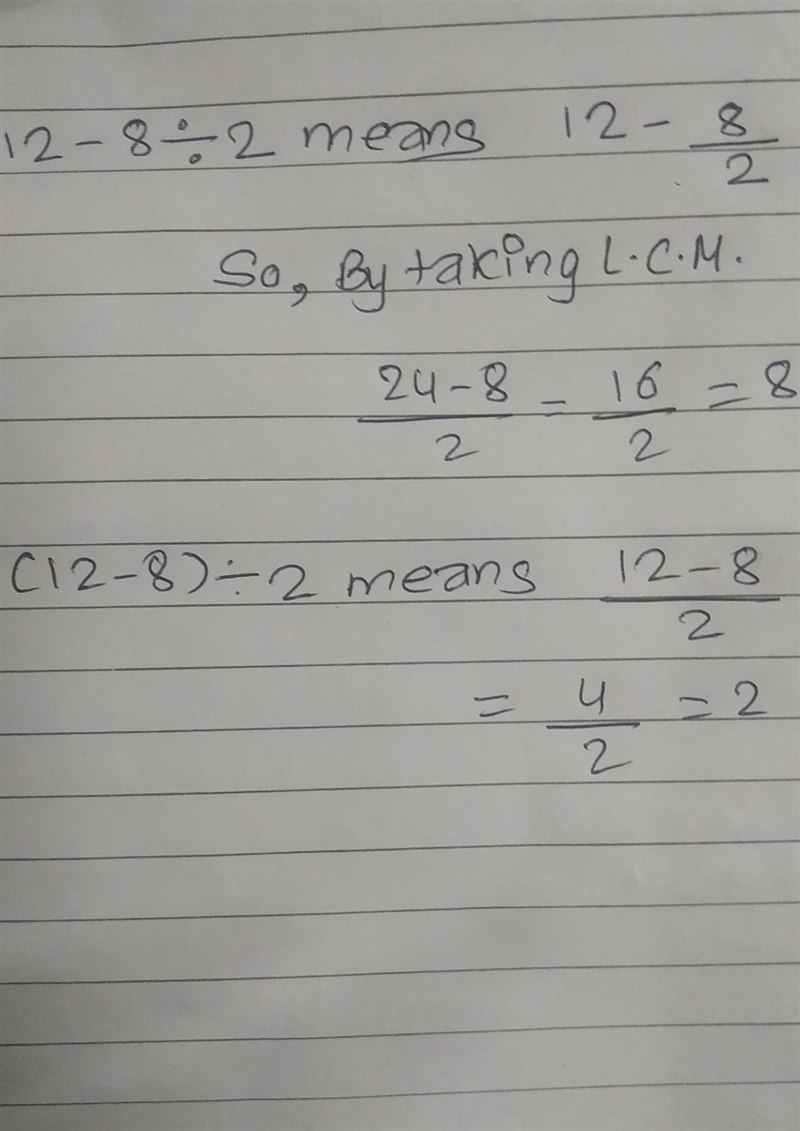 12 - 8 ÷ 2 means 12 - 8/2
So, By taking L.C.M.
24 - 8/2 = 16/2 = 8
(12 - 8) ÷ 2 means 12 - 8/2
= 4/2 = 2